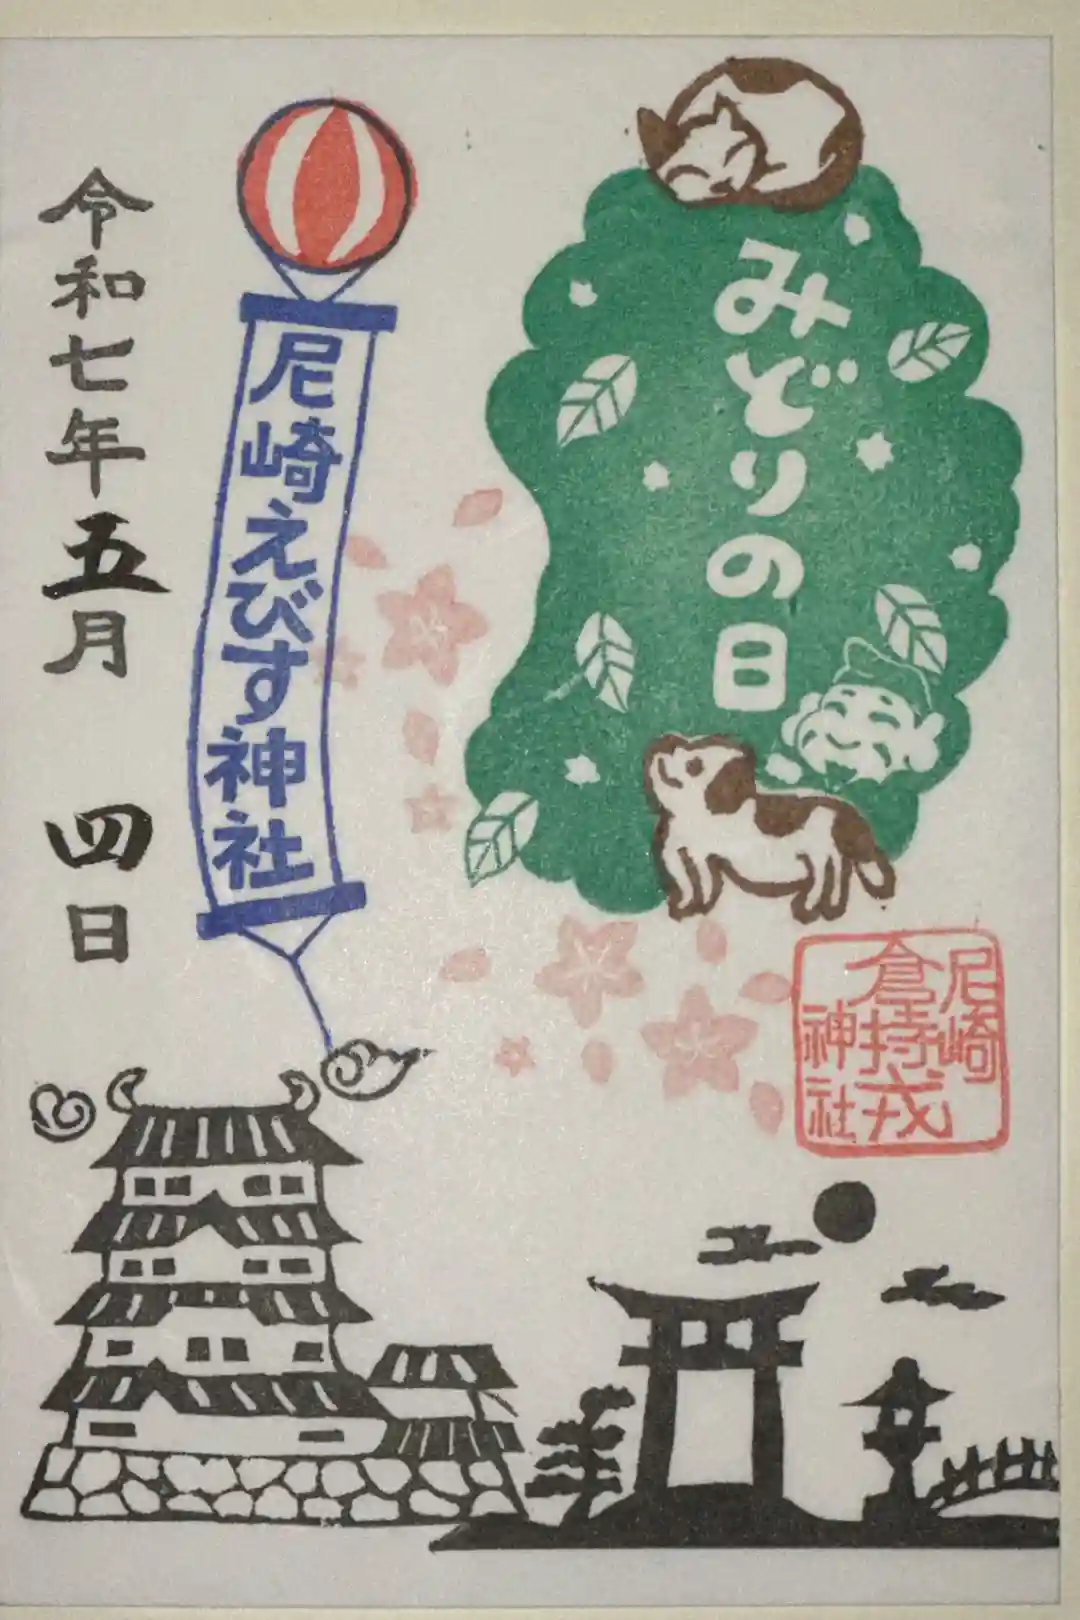 みどりの日
尼崎えびす神社
令和七年五月四日
尼崎
神社